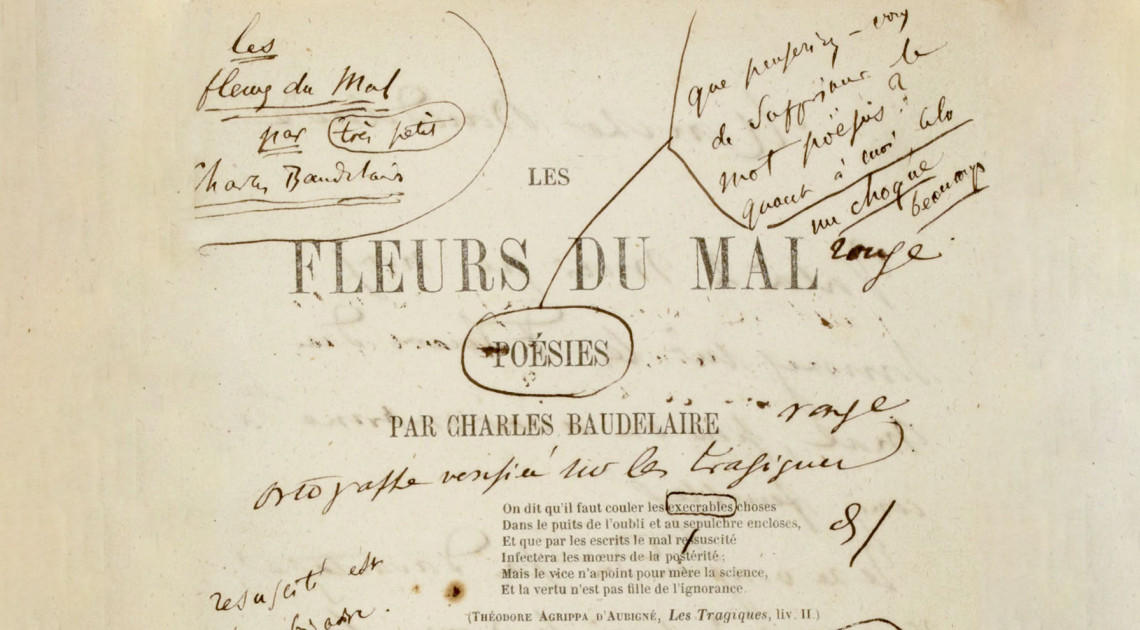 les
fleurs du Mal
par très petit
Charles Baudelaire
que penseriez-vous
de supprimer le
mot poësies?
quant à moi cela
me choque
beaucoup
LES
FLEURS DU MAL
rouge
POÉSIES
PAR CHARLES BAUDELAIRE
rouge
ortografe verifiée sur les tragiques
On dit qu'il faut couler les execrables choses
Dans le puits de l'oubli et au sepulchre encloses,
Et que par les escrits le mal resuscité
Infectera les mœurs de la postérité;
Mais le vice n'a point pour mère la science,
Et la vertu n'est pas fille de l'ignorance.
resuscité est
(THÉODORE AGRIPPA D'AUBIGNÉ, Les Tragiques, liv. II.)